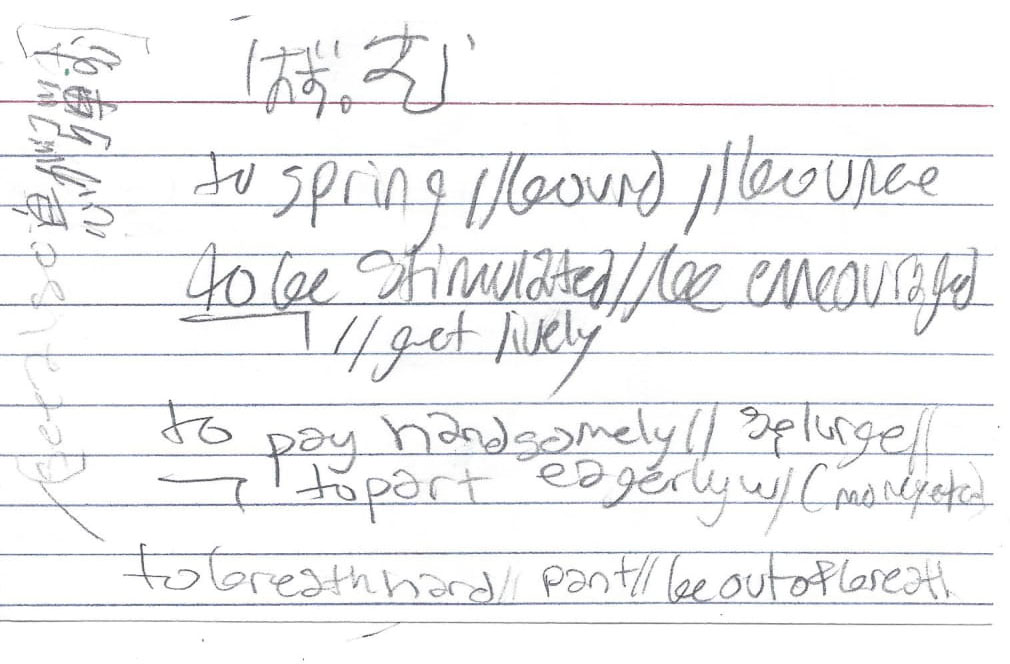 はず。む
to spring //bound //bounce
to be stimulated//be encouraged
//get lively
to pay handsomely// splurge//
to part eagerly w/ (money etc)
to breath hard// pant// be out of breath
see also